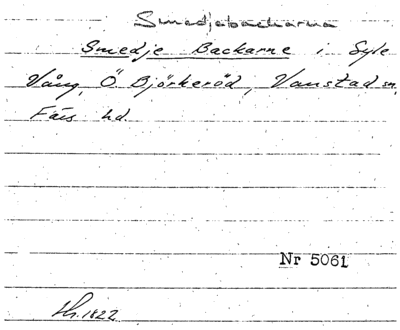 Smedjebackarna
Smedje Backarne i Syle
Vång, Ö Björkeröd, Vanstad sn,
Färs hd.
Nr 5061
1822